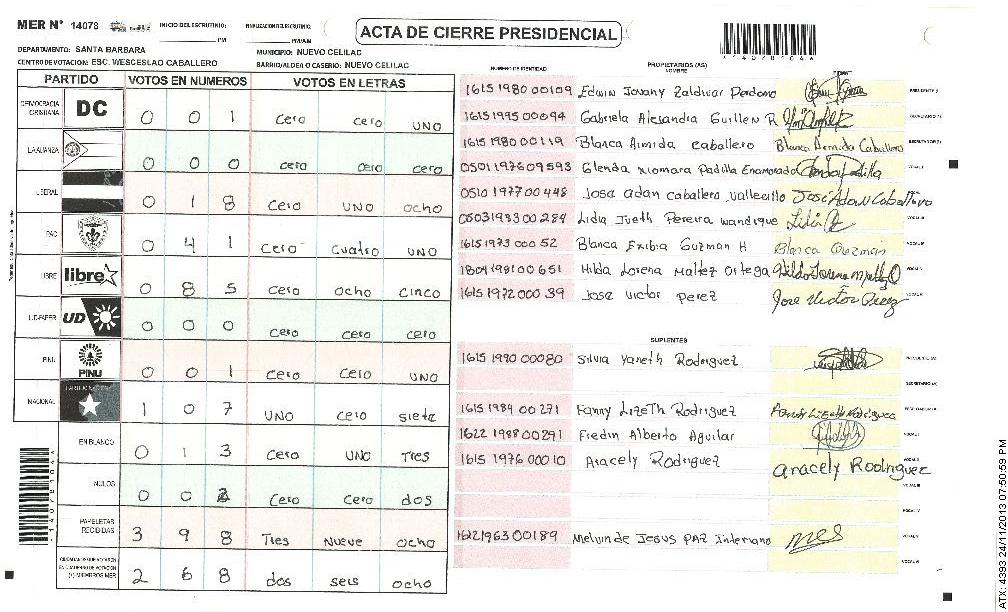 MER N° 14078
INICIO DEL ESCRUTINIO:
PM
FINALIZACION DEL ESCRUTINIO:
PM/AM
ACTA DE CIERRE PRESIDENCIAL
DEPARTAMENTO: SANTA BARBARA
MUNICIPIO: NUEVO CELILAC
CENTRO DE VOTACION: ESC. WESCESLAO CABALLERO
BARRIO/ALDEA O CASERIO: NUEVO CELILAC
PARTIDO VOTOS EN NUMEROS VOTOS EN LETRAS
DEMOCRACIA CRISTIANA DC 0 0 1 cero cero UNO
LA ALIANZA 0 0 0 cero cero cero
LIBERAL 0 1 8 cero UNO ocho
PAC 0 4 1 cero cuatro UNO
LIBRE libre 0 8 5 cero ocho cinco
UD-FAPER UD 0 0 0 cero cero cero
PINU PINU 0 0 1 cero cero UNO
NACIONAL 1 0 7 UNO cero siete
EN BLANCO 0 1 3 cero UNO Tres
NULOS 0 0 2 cero cero dos
PAPELETAS RECIBIDAS 3 9 8 Tres Nueve ocho
CIUDADANOS QUE VOTARON EN CUADERNO DE VOTACION (+) MIEMBROS MER 2 6 8 dos seis ocho
NUMERO DE IDENTIDAD
PROPIETARIOS (AS)
NOMBRE
FIRMA
1615 1980 00109 Edwin Jovany Zaldivar Perdomo
1615 1995 00094 Gabriela Alesandra Guillen R
1615 1980 00119 Blanca Almida caballero Blanca Almida Caballero
0501 1976 09593 Glenda Xiomara Padilla Enamorado Glenda Padilla
0510 1977 00448 Jose adan caballero vallecillo Jose Adan Caballero
0503 1983 00284 Lidia Jueth Pereira wandique
1615 1973 000 52 Blanca Exibia Guzman H Blanca Guzmán
1804 1981 00651 Hilda Lorena Maltez Ortega
1615 1972 000 39 Jose victor perez Jose Victor Perez
SUPLENTES
1615 1990 00080 Silvia Yaneth Rodriguez
1615 1989 00 271 Fanny Lizeth Rodriguez Fanny Lizeth Rodriguez
1622 1988 00291 Fredin Alberto Aguilar
1615 1976 00010 Aracely Rodriguez aracely Rodriguez
1622 1963 00189 Melvin de JESUS PAZ Interiano
ATX: 4393 24/11/2013 07:50:59 PM